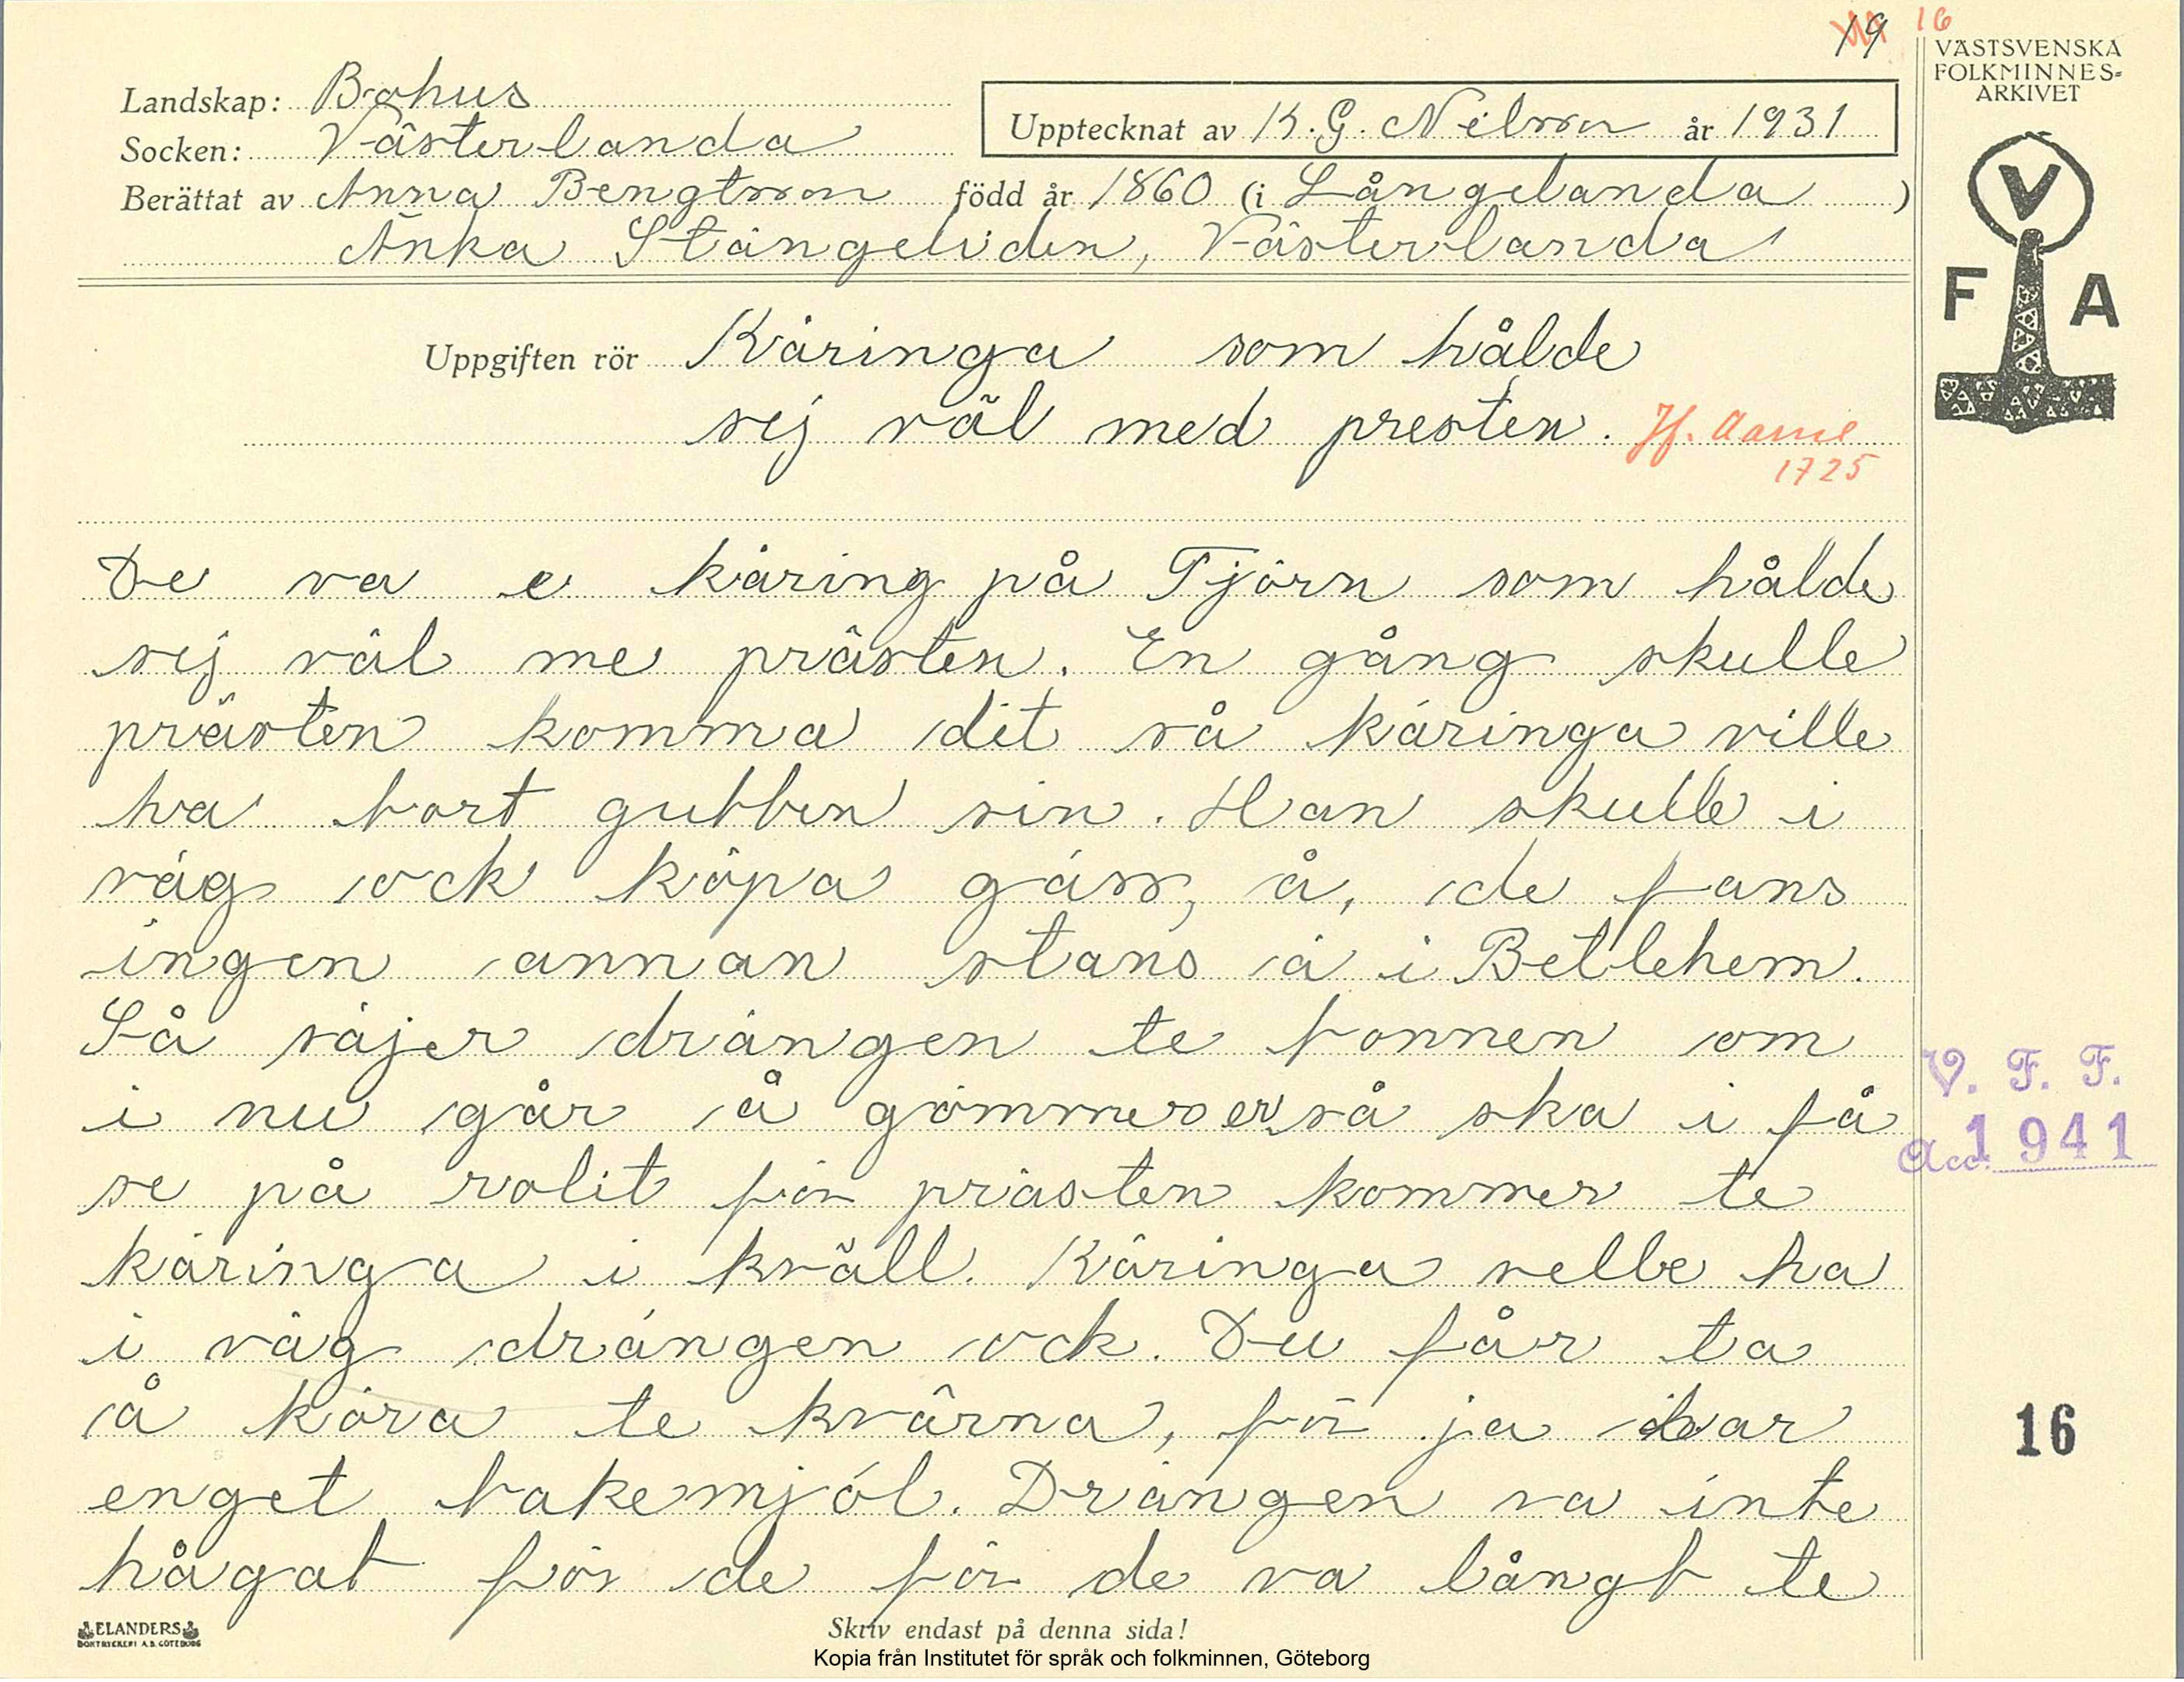 19 16
VÄSTSVENSKA
FOLKMINNES=
ARKIVET
Landskap: Bohus
Socken: Västerlanda
Upptecknat av K. G. Nilsson år 1931
Berättat av Anna Bengtsson född år 1860 (i Långelanda )
Änka Stängeliden, Västerlanda
V
F A
Uppgiften rör Käringa som hålde
sej väl med presten. Jf. Aarne
1725
De va e käring på Tjörn som hålde
sej väl me prästen. En gång skulle
prästen komma dit så käringa ville
ha bort gubben sin. Han skulle i
väg ock köpa gäss, å, de fans
ingen annan stans å i Betlehem.
Så säjer drängen te bonnen om
i nu går å gömmer er så ska i få
se på rolit för prästen kommer te
käringa i kväll. Käringa velle ha
i väg drängen ock. Du får ta
å köra te kvärna, för ja har
enget bakemjöl. Drängen va inte
hågat för de för de va långt te
V. F. F.
Acc. 1941
16
ELANDERS
BOKTRYCKERI A.B. GÖTEBORG
Skriv endast på denna sida!
Kopia från Institutet för språk och folkminnen, Göteborg